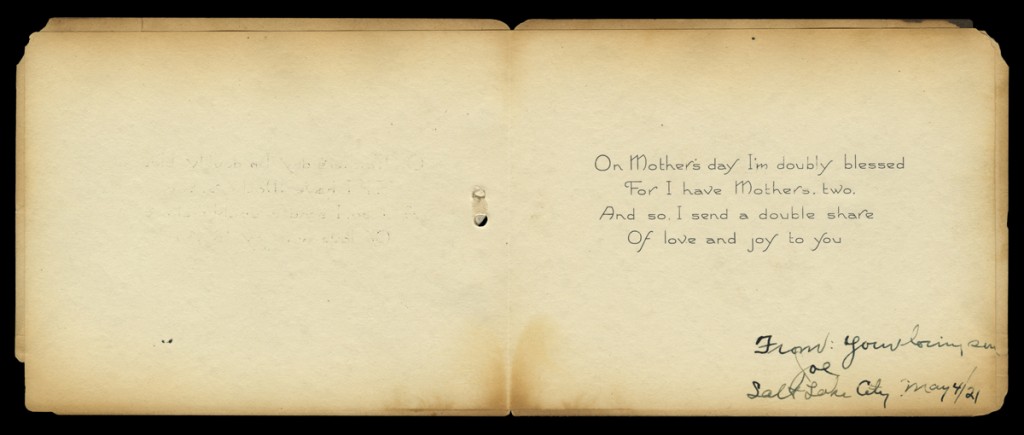 On Mother's day I'm doubly blessed
For I have Mothers, two.
And so, I send a double share
Of love and joy to you
From: Your loving son
Joe
Salt Lake City May 4/21